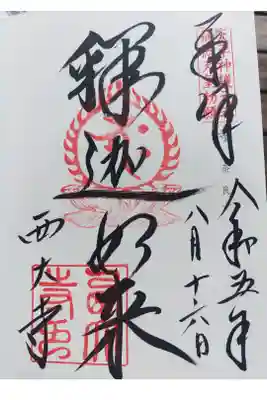 奉拝
令和五年
八月十六日
釋迦如来
西大寺